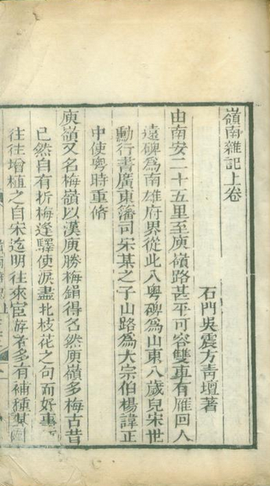 嶺南雜記上卷
石門吳震方青壇著
由南安二十五里至庾嶺路甚平可容雙車有雁回人
遠碑為南雄府界從此入粤碑為山東八歲兒宋世
勳行書廣東藩司宋某之子山路為大宗伯楊諱正
中使粤時重脩
庾嶺又名梅嶺以漢庾勝梅鋗得名然庾嶺多梅古昔
已然自有折梅逢驛使淚盡北枝花之句而好事
往往增植之自宋迄明往來宦游者多有補種某